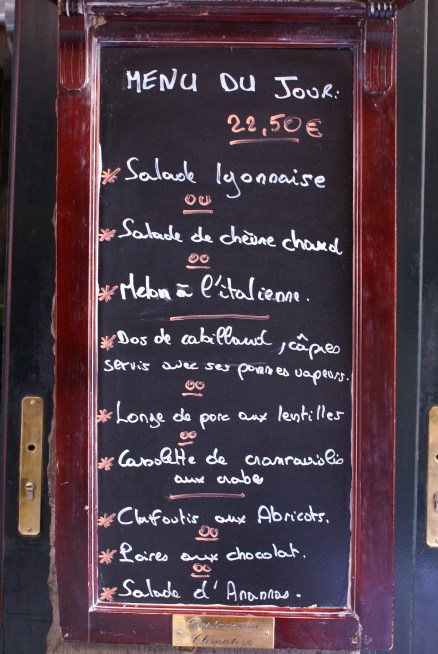 MENU DU JOUR:
22,50€
* Salade lyonnaise
ou
* Salade de chèvre chaud
ou
* Melon à l'italienne.
* Dos de cabillaud, câpres
servis avec ses pommes vapeurs.
ou
* Longe de porc aux lentilles
ou
* Cassolette de cramraviolis
aux crabe
* Clafoutis aux Abricots.
ou
* Poires aux chocolat.
ou
* Salade d'Ananas.
Restaurant